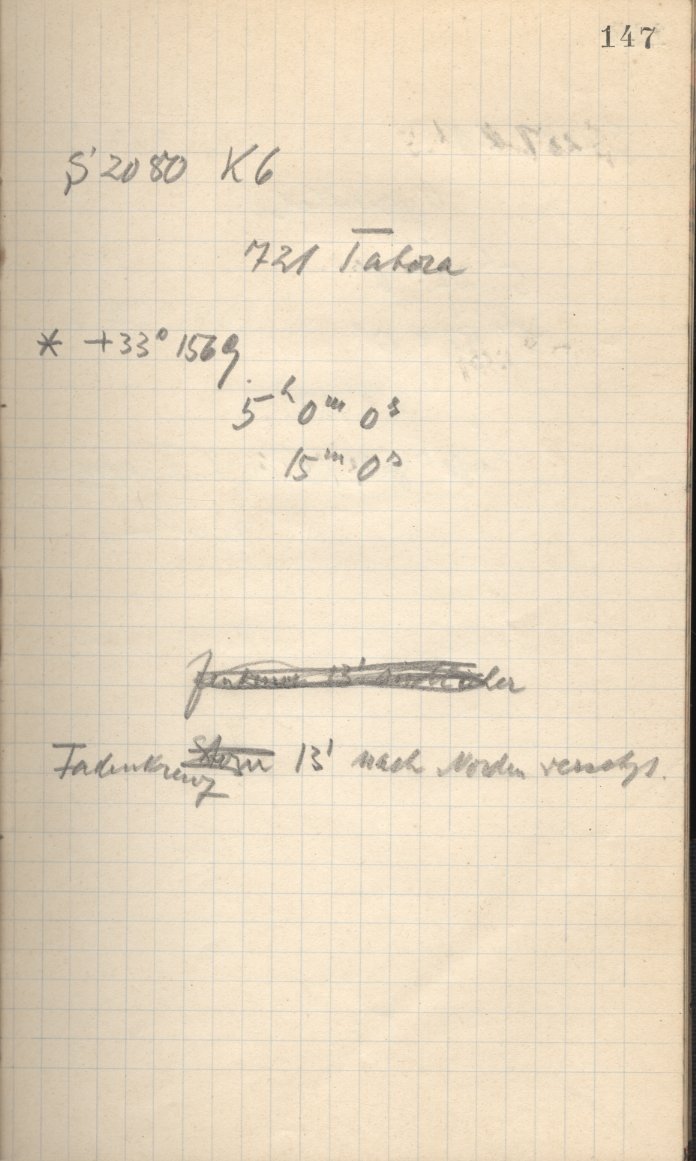 147
S 2080 K6
721 Tabora
* +33° 1569
5ʰ 0ᵐ 0ˢ
15ᵐ 0ˢ
13'
Fadenkreuz Stern 13' nach Norden versetzt.